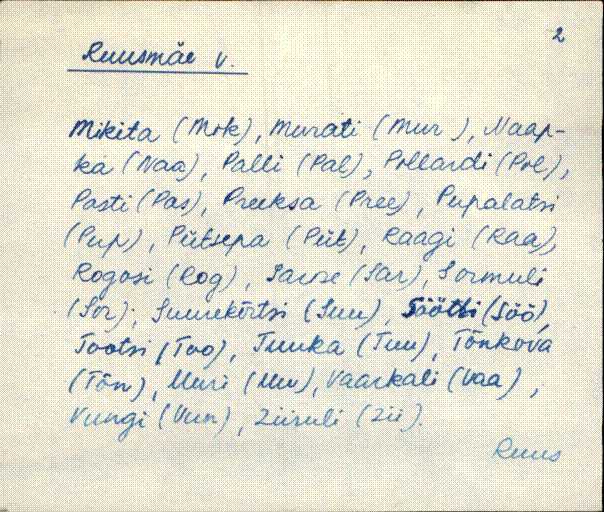 2
Ruusmäe v.
Mikita (Mik), Murati (Mur), Naap-
ka (Naa), Palli (Pal), Pollardi (Pol),
Pasti (Pas), Preeksa (Pree), Pupalatsi
(Pup), Pütsepa (Püt), Raagi (Raa),
Rogosi (Rog), Saarse (Sar), Sormuli
(Sor), Suurekõrtsi (Suu), Söötti (Söö),
Tootsi (Too), Tuuka (Tuu), Tõnkova
(Tõn), Uuri (Uu), Vaarkali (Vaa),
Vungi (Vun), Ziiruli (Zii).
Ruus